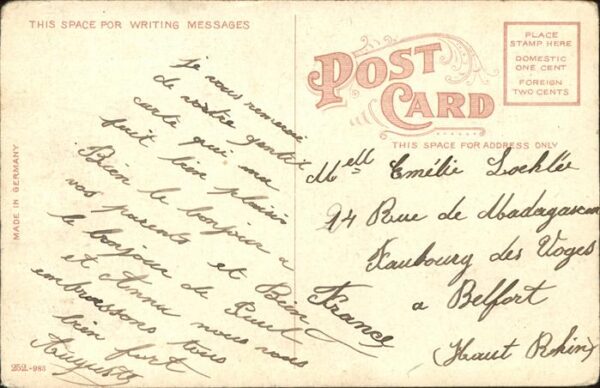 THIS SPACE FOR WRITING MESSAGES
POST
CARD
THIS SPACE FOR ADDRESS ONLY
PLACE
STAMP HERE
DOMESTIC
ONE CENT
FOREIGN
TWO CENTS
MADE IN GERMANY
252.-983
je vous remerci
de votre gentil
carte qui ma
fait bien plaisir
Bien le bonjour a
vos parents et Bien
le bonjour de Paul
et Anna nous vous
embrassons tous
bien fort
Auguste
Mell Emélie Lochlée
24 Rue de Madagascar
Faubourg des Voges
a Belfort
France
(Haut Rhin)